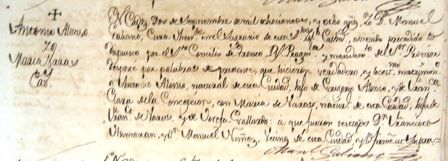 Antonio Alonso
y
Maria Naras
Cas.
En Cadiz, Dos de Septiembre de mil ochocientos, y ocho años, yo D. Manuel
Cura Then. del Sagrario de esta Sta. Yglesia Cathl. haviendo precedido lo
dispuesto por el Sto. Concilio de Trento, Rl. Pragca. y mandamto. del Sr. Provisor
Desposé por palabras de presente, que hicieron verdadero, y lexmo. matrimonio
a Antonio Alonso, natural de esta Ciudad, hijo de Alonso, y de
Clara de la Concepcion, con Maria de Naras, natural de esta Ciudad, hija de
Juan de Naras, y de Teresa Gallardo: a que fueron testigos Dn. Francisco
y Dn. Manuel Nuñez, vecinos de esta Ciudad, y lo firmé ut supra.
Manl.